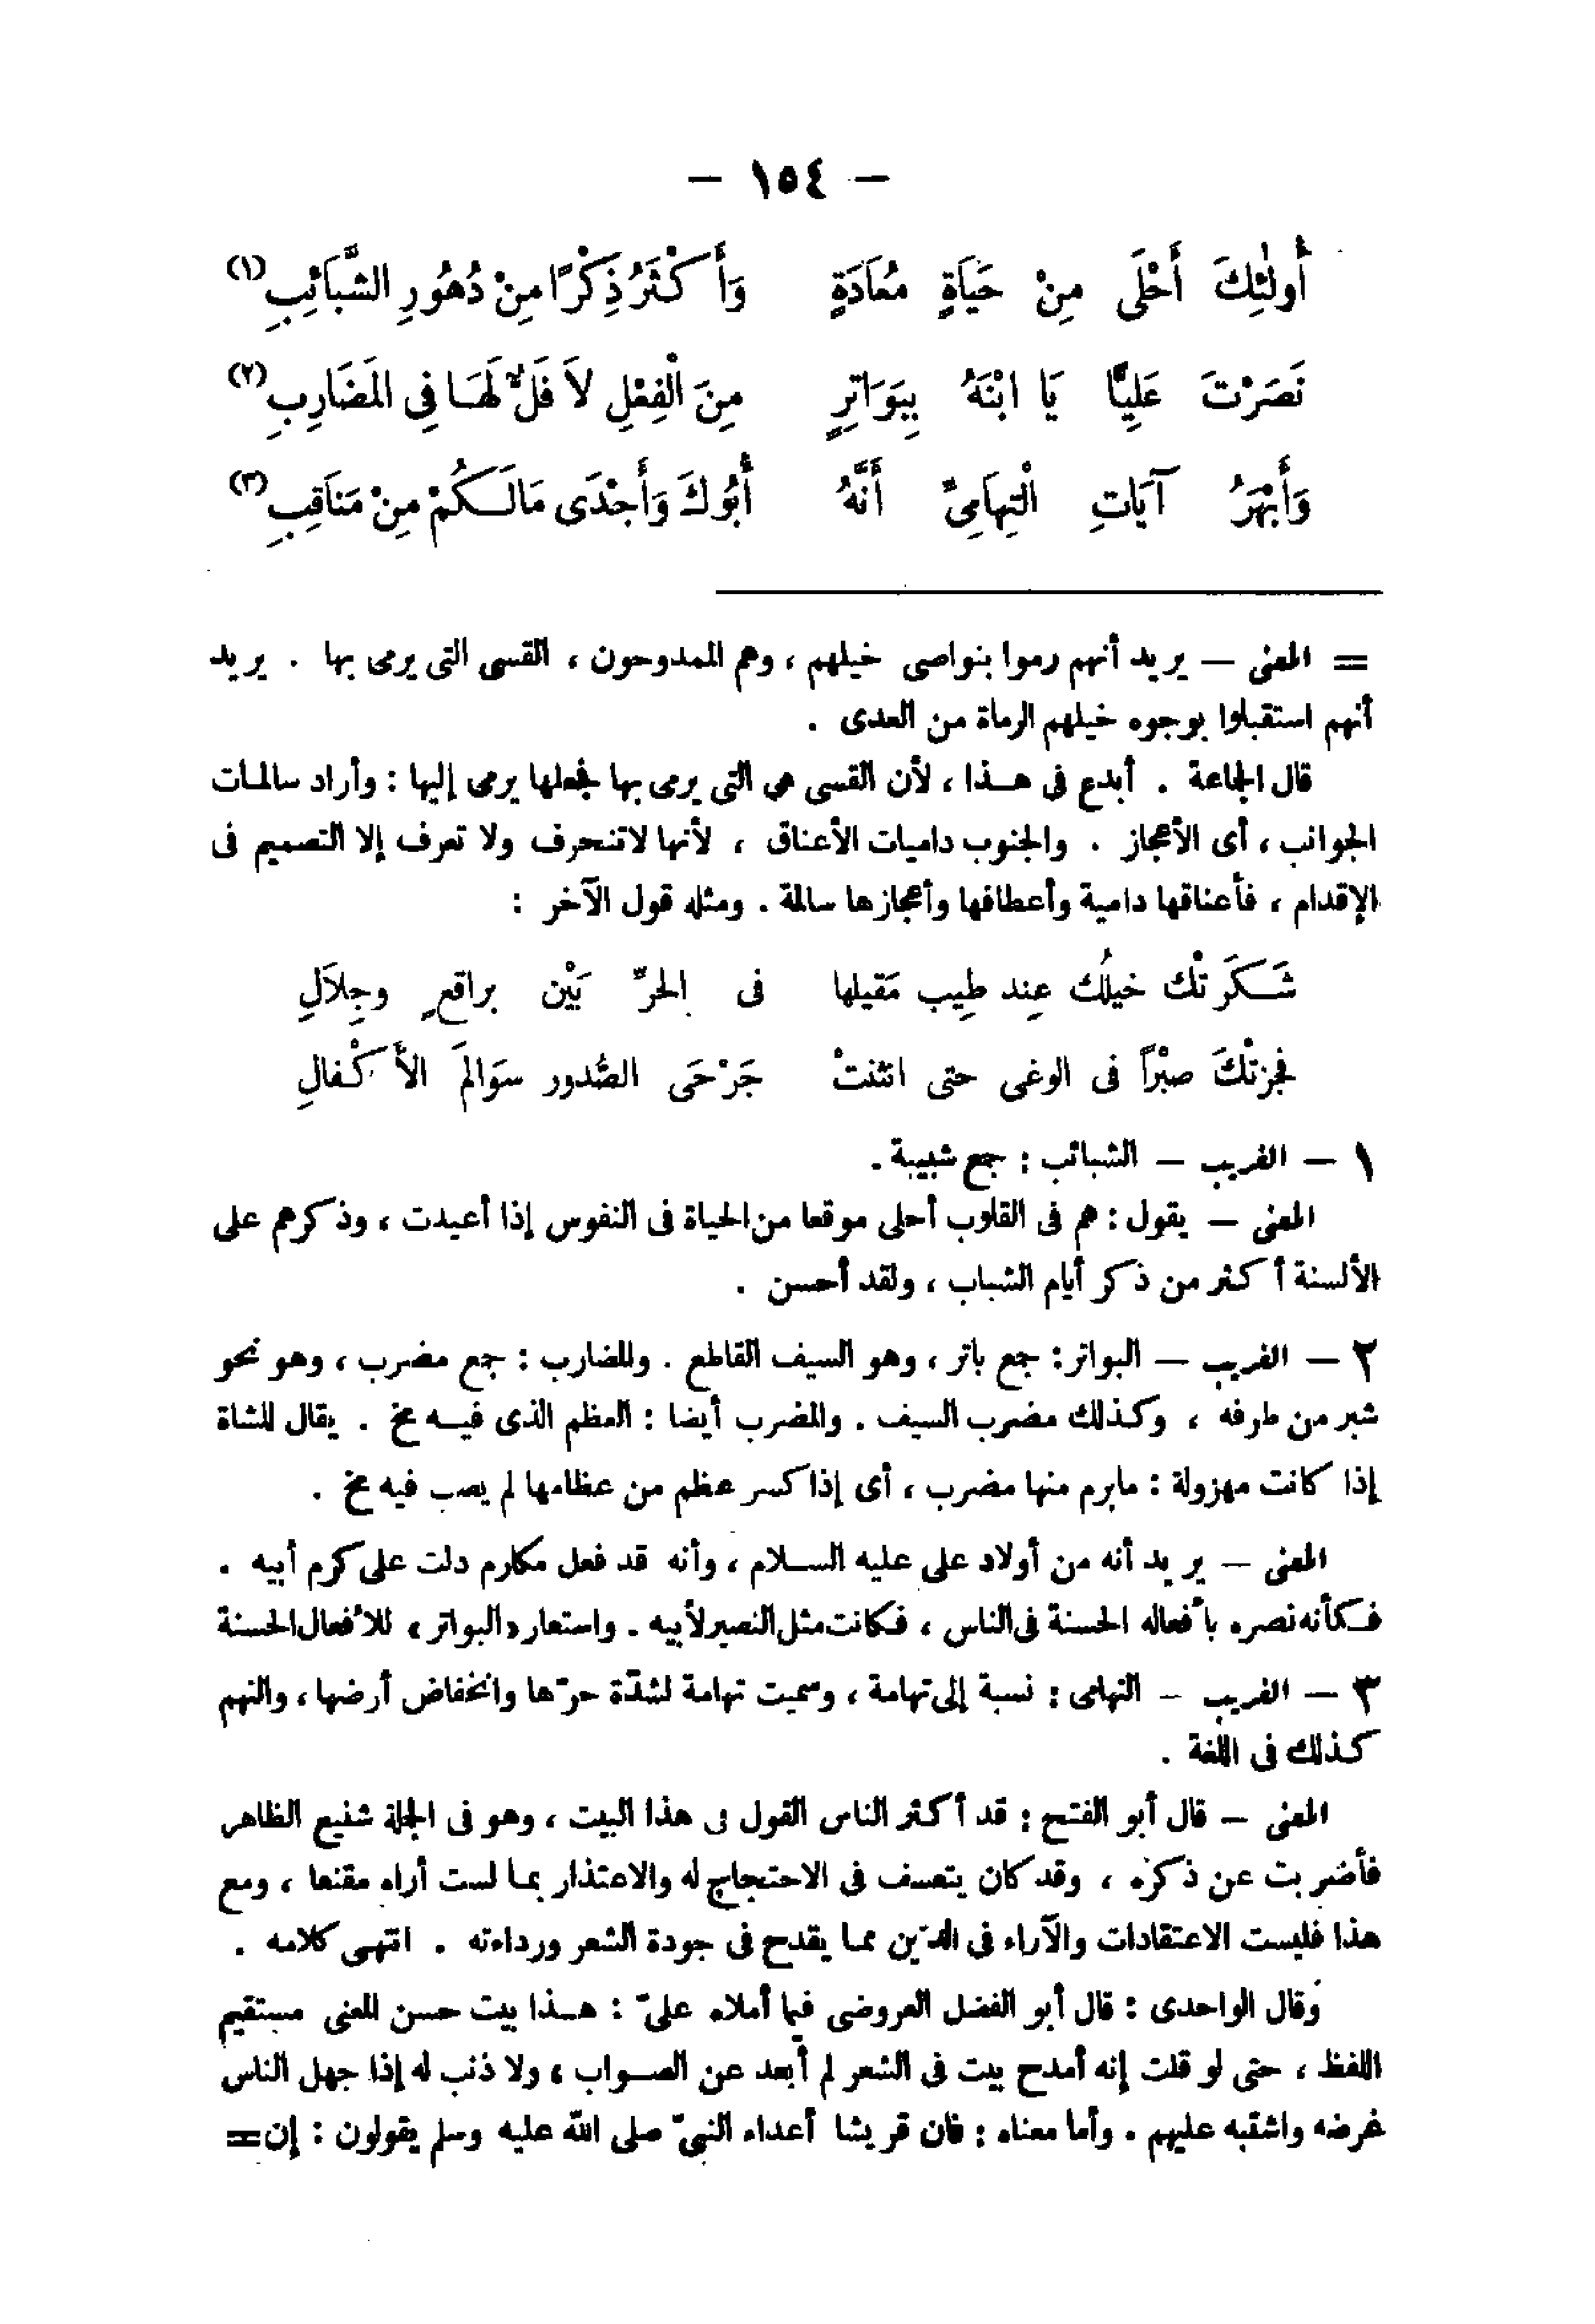 — ١٥٤ —
أُولٰئِكَ أَحْلَى مِنْ حَيَاةٍ مُعَادَةٍ وَأَكْثَرُ ذِكْرًا مِنْ دُهُورِ الشَّبَائِبِ (١)
نَصَرْتَ عَلِيًّا يَا ابْنَهُ بِبَوَاتِرٍ مِنَ الْفِعْلِ لاَ فَلٌّ لَهَا فِى المَضَارِبِ (٢)
وَأَبْهَرُ آيَاتِ الْتِهَامِىِّ أَنَّهُ أَبُوكَ وَأَجْدَى مَالَكُمْ مِنْ مَنَاقِبِ (٣)
= المعنى — يريد أنهم رموا بنواصى خيلهم ، وهم الممدوحون ، القسى التى يرمى بها . يريد
أنهم استقبلوا بوجوه خيلهم الرماة من العدى .
قال الجماعة . أبدع فى هـذا ، لأن القسى هى التى يرمى بها فجعلها يرمى إليها : وأراد سالمـات
الجوانب ، أى الأعجاز . والجنوب داميات الأعناق ، لأنها لاتنحرف ولا تعرف إلا التصميم فى
الإقدام ، فأعناقها دامية وأعطافها وأعجازها سالمة . ومثله قول الآخر :
شَـكَرَتْك خيلُك عِند طِيب مَقيلها فى الحرِّ بَيْن براقعٍ وجِلاَلِ
فجزتْكَ صبْراً فى الوغى حتى انثنتْ جَرْحَى الصُّدور سوَالمَ الأَكْفالِ
١ — الغريب — الشبائب : جمع شبيبة .
المعنى — يقول : هم فى القلوب أحلى موقعا من الحياة فى النفوس إذا أعيدت ، وذكرهم على
الألسنة أكثر من ذكر أيام الشباب ، ولقد أحسن .
٢ — الغريب — البواتر : جمع باتر ، وهو السيف القاطع . والمضارب : جمع مضرب ، وهو نحو
شبر من طرفه ، وكذلك مضرب السيف . والمضرب أيضا : العظم الذى فيـه مخ . يقال للشاة
إذا كانت مهزولة : مايرم منها مضرب ، أى إذا كسر عظم من عظامها لم يصب فيه مخ .
المعنى — يريد أنه من أولاد على عليه السـلام ، وأنه قد فعل مكارم دلت على كرم أبيه .
فـكأنه نصره بأفعاله الحسنة فى الناس ، فـكانت مثل النصير لأبيه . واستعار « البواتر » للأفعال الحسنة
٣ — الغريب — التهامى : نسبة إلى تهامة ، وسميت تهامة لشدّة حرّها وانخفاض أرضها ، والتهم
كذلك فى اللغة .
المعنى — قال أبو الفتح : قد أكثر الناس القول فى هذا البيت ، وهو فى الجملة شنيع الظاهر
فأضربت عن ذكره ، وقد كان يتعسف فى الاحتجاج له والاعتذار بمـا لست أراه مقنعا ، ومع
هذا فليست الاعتقادات والآراء فى الدّين ممـا يقدح فى جودة الشعر ورداءته . انتهى كلامه .
وقال الواحدى : قال أبو الفضل العروضى فيما أملاه علىّ : هـذا بيت حسن المعنى مستقيم
اللفظ ، حتى لو قلت إنه أمدح بيت فى الشعر لم أبعد عن الصـواب ، ولا ذنب له إذا جهل الناس
غرضه واشتبه عليهم . وأما معناه : فان قريشا أعداء النبىّ صلى الله عليه وسلم يقولون : إن =